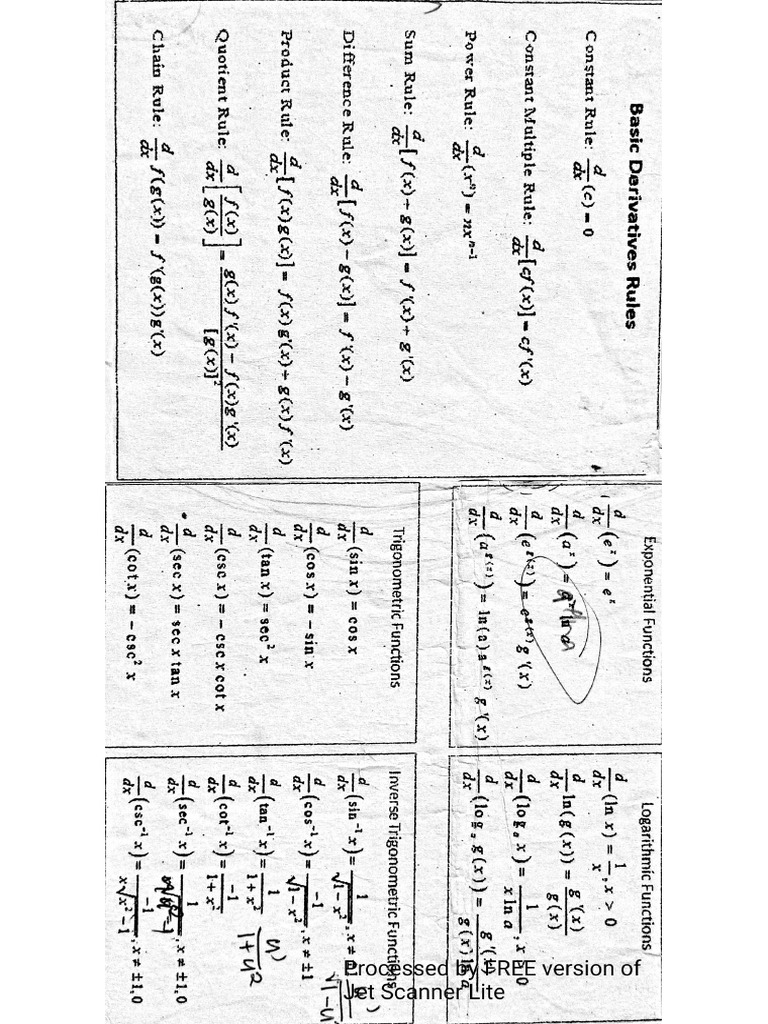 Basic Derivatives Rules
Constant Rule: d/dx (c) = 0
Constant Multiple Rule: d/dx [cf(x)] = cf'(x)
Power Rule: d/dx (xⁿ) = nxⁿ⁻¹
Sum Rule: d/dx [f(x) + g(x)] = f'(x) + g'(x)
Difference Rule: d/dx [f(x) − g(x)] = f'(x) − g'(x)
Product Rule: d/dx [f(x)g(x)] = f(x)g'(x) + g(x)f'(x)
Quotient Rule: d/dx [f(x)/g(x)] = (g(x)f'(x) − f(x)g'(x))/[g(x)]²
Chain Rule: d/dx f(g(x)) = f'(g(x))g'(x)
Exponential Functions
d/dx (eˣ) = eˣ
d/dx (aˣ) = aˣ ln a
d/dx (e^g(x)) = e^g(x) g'(x)
d/dx (a^g(x)) = ln(a) a^g(x) g'(x)
Logarithmic Functions
d/dx (ln x) = 1/x, x > 0
d/dx ln(g(x)) = g'(x)/g(x)
d/dx (logₐ x) = 1/(x ln a), x > 0
d/dx (logₐ g(x)) = g'(x)/(g(x) ln a)
Trigonometric Functions
d/dx (sin x) = cos x
d/dx (cos x) = − sin x
d/dx (tan x) = sec² x
d/dx (csc x) = − csc x cot x
d/dx (sec x) = sec x tan x
d/dx (cot x) = − csc² x
Inverse Trigonometric Functions
d/dx (sin⁻¹ x) = 1/√(1 − x²), x ≠
d/dx (cos⁻¹ x) = −1/√(1 − x²), x ≠ ±1
d/dx (tan⁻¹ x) = 1/(1 + x²) u'/(1+u²)
d/dx (cot⁻¹ x) = −1/(1 + x²)
d/dx (sec⁻¹ x) = 1/, x ≠ ±1, 0
d/dx (csc⁻¹ x) = −1/(x√(x² − 1)), x ≠ ±1, 0
Processed by FREE version of
Jet Scanner Lite